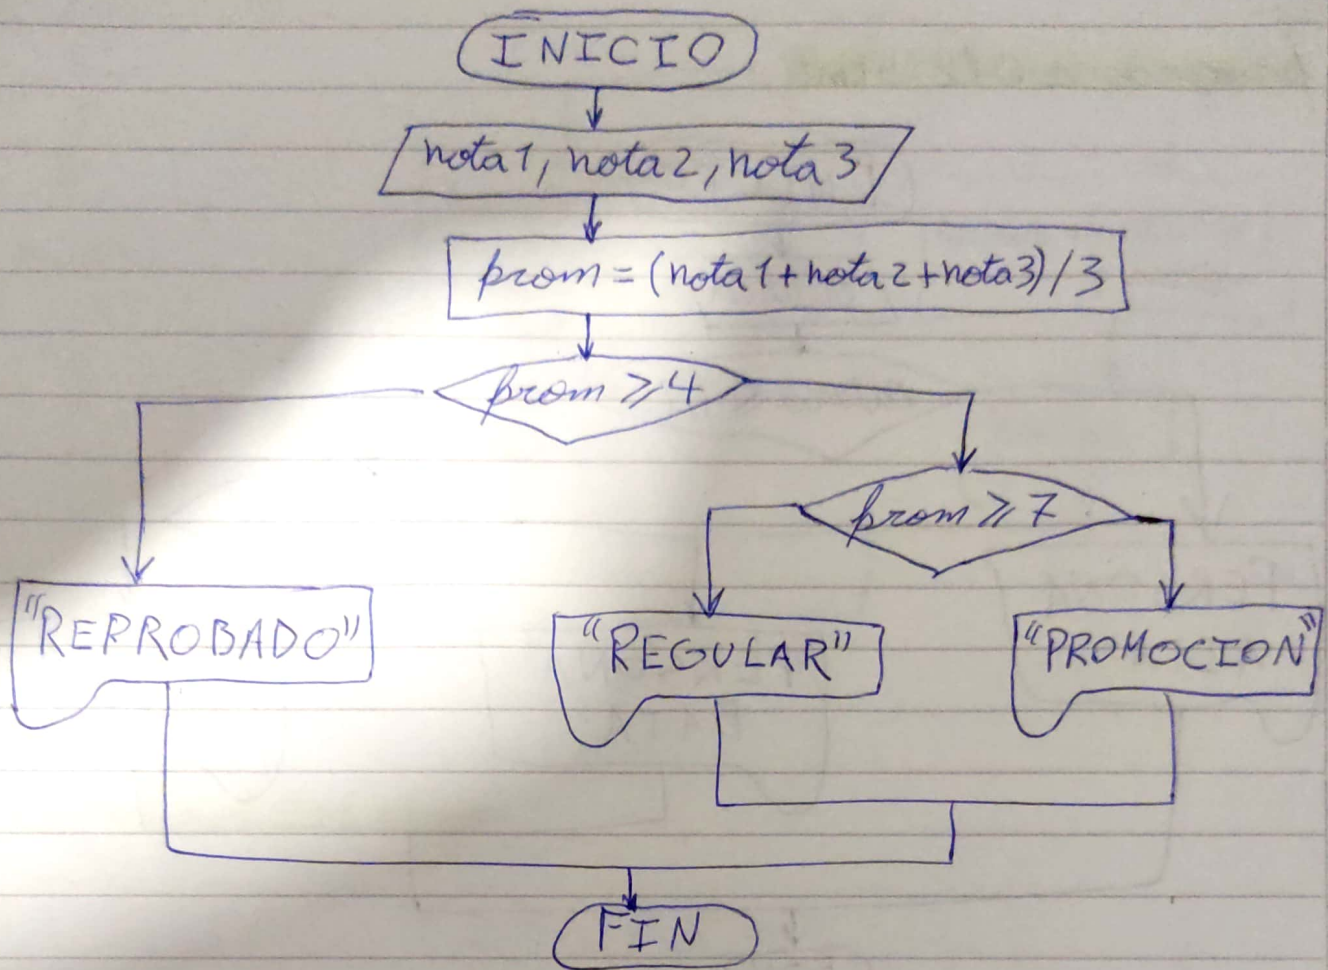 INICIO
nota1, nota2, nota3
prom = (nota1+nota2+nota3)/3
prom ≥ 4
prom ≥ 7
"REPROBADO"
"REGULAR"
"PROMOCION"
FIN